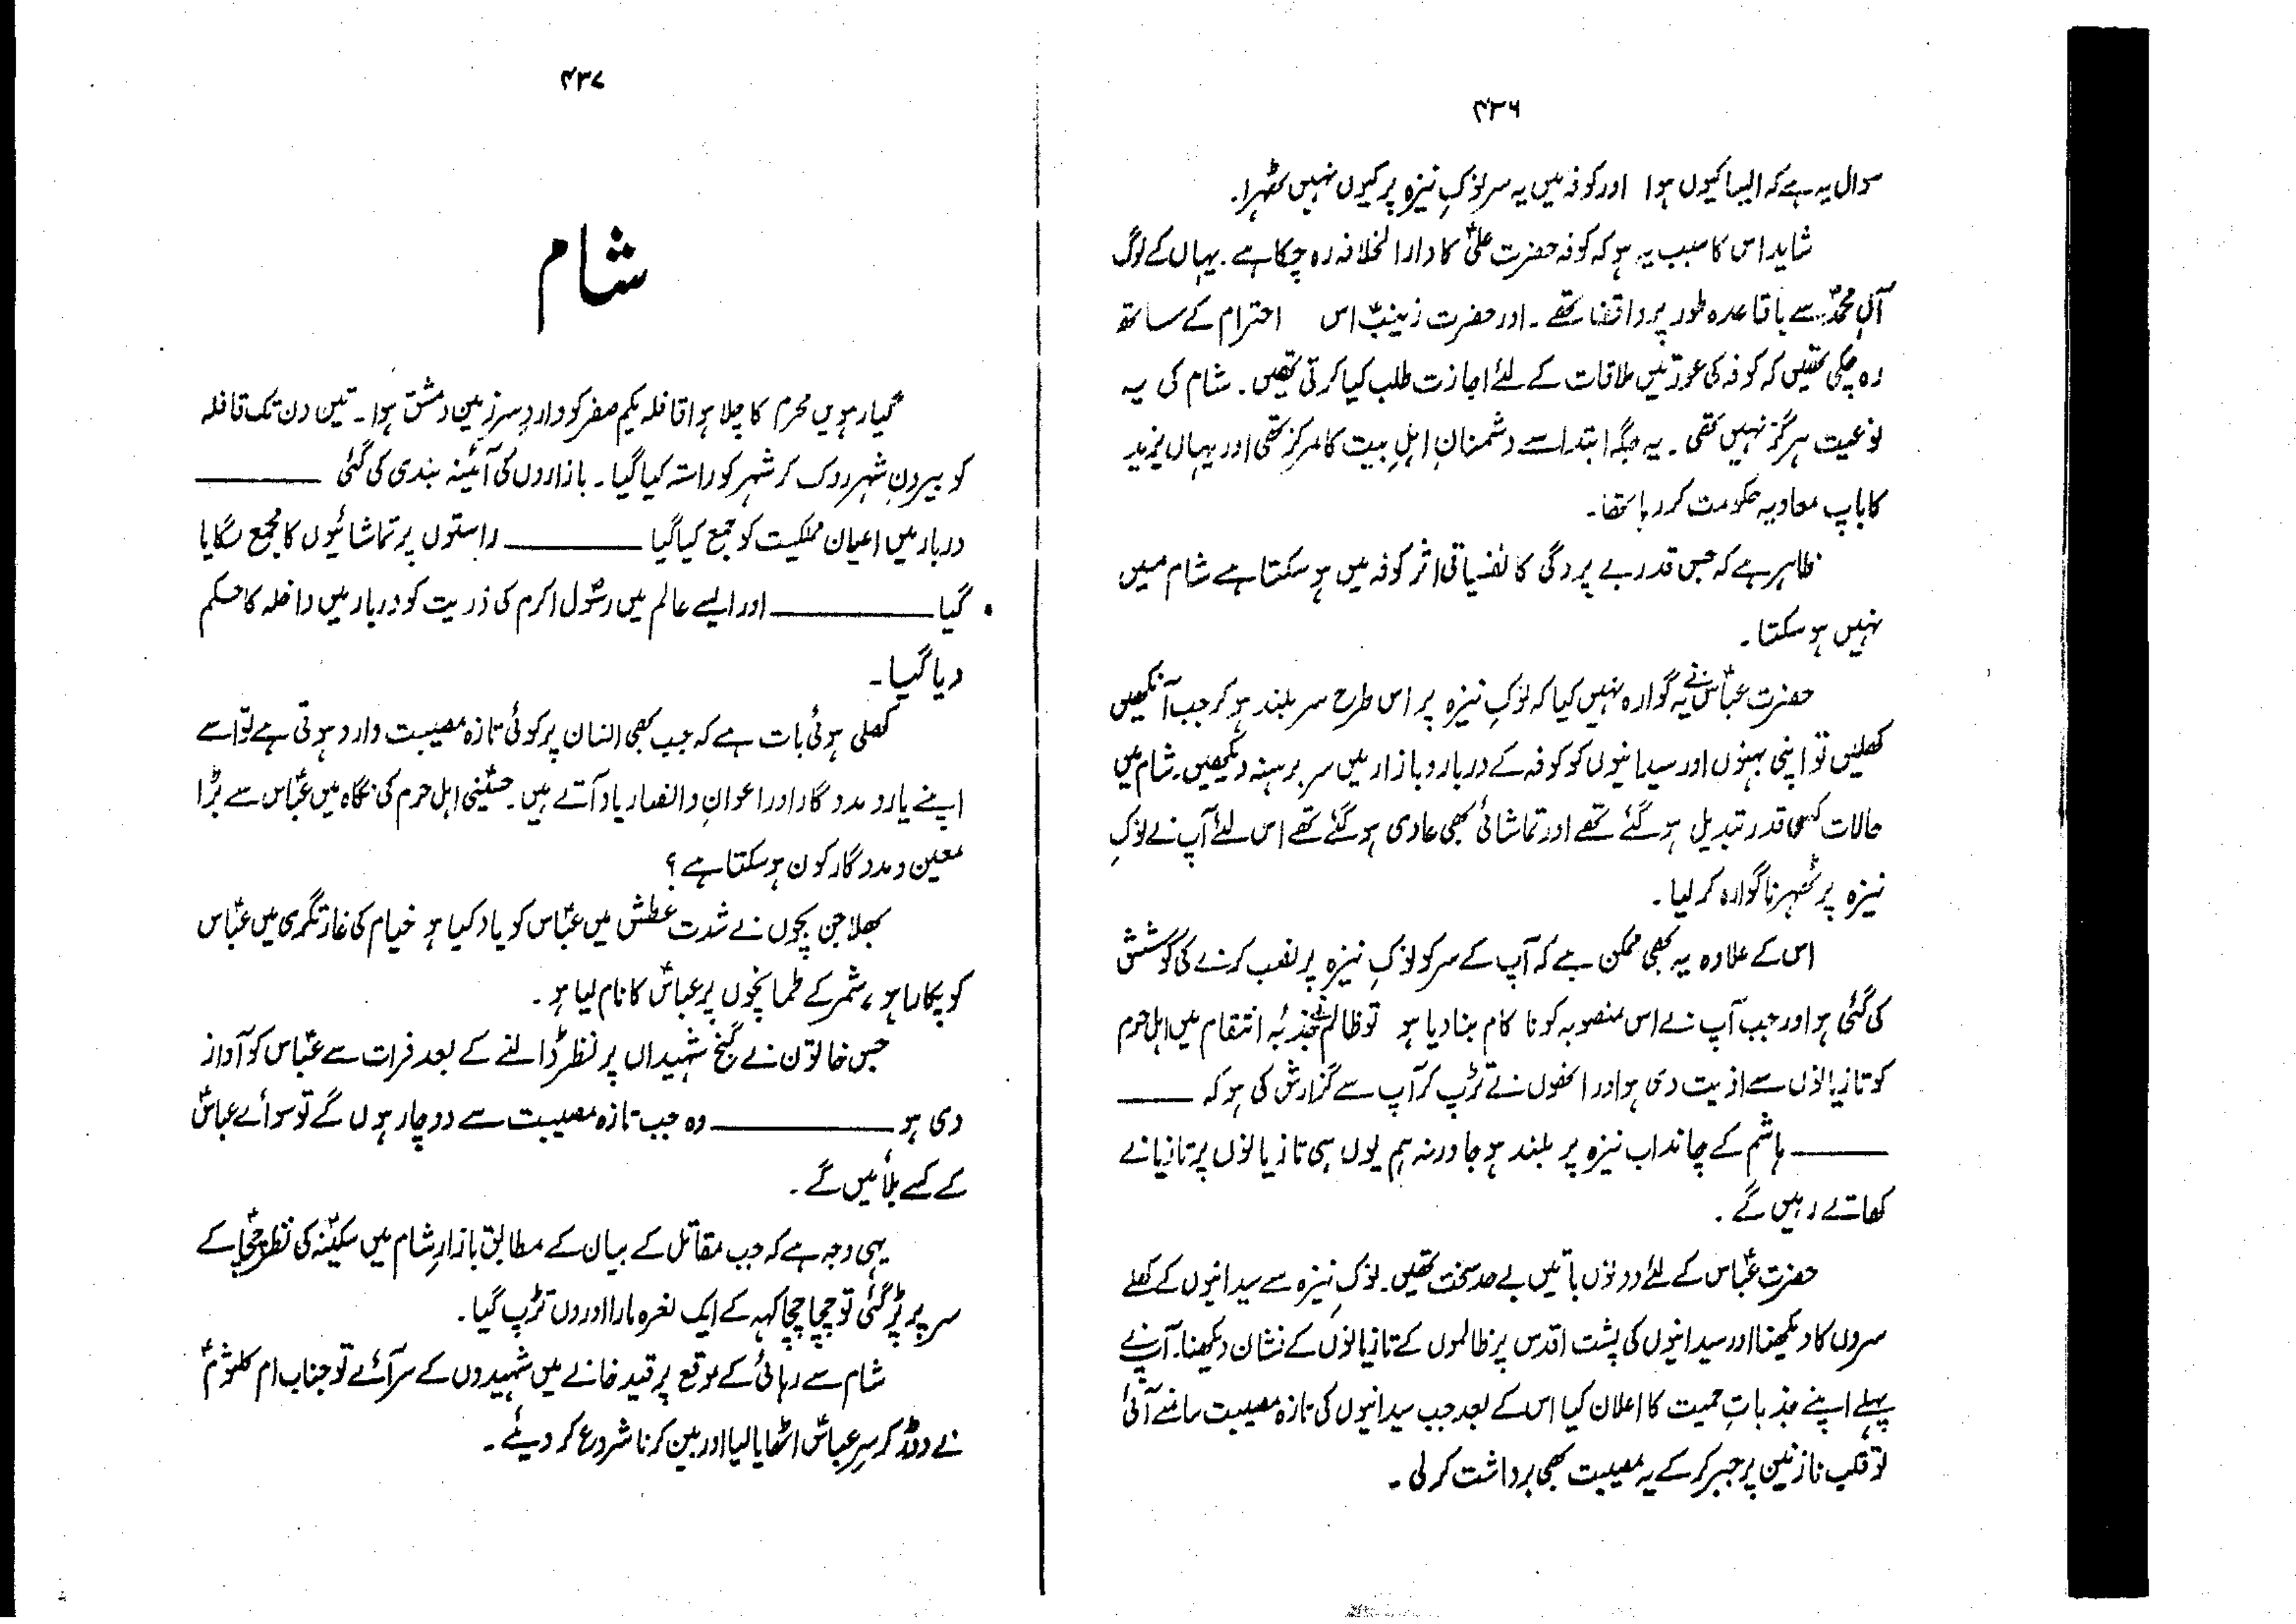 ۴۳۶
سوال یہ ہے کہ ایسا کیوں ہوا اور کوفہ میں یہ سر نوکِ نیزہ پر کیوں نہیں ٹھہرا.
شاید اس کا سبب یہ ہو کہ کوفہ حضرت علیؑ کا دارالخلافہ رہ چکا ہے. یہاں کے لوگ
آلِ محمدؐ سے باقاعدہ طور پر واقف تھے۔ اور حضرت زینبؑ اس احترام کے ساتھ
رہ چکی تھیں کہ کوفہ کی عورتیں ملاقات کے لئے اجازت طلب کیا کرتی تھیں. شام کی یہ
نوعیت ہرگز نہیں تھی۔ یہ جگہ ابتدا سے دشمنانِ اہلِ بیت کا مرکز تھی اور یہاں یزید
کا باپ معاویہ حکومت کر رہا تھا۔
ظاہر ہے کہ جس قدر بے پردگی کا نفسیاتی اثر کوفہ میں ہو سکتا ہے شام میں
نہیں ہو سکتا۔
حضرت عباسؑ نے یہ گوارہ نہیں کیا کہ نوکِ نیزہ پر اس طرح سر بلند ہو کر جب آنکھیں
کھلیں تو اپنی بہنوں اور سیدانیوں کو کوفہ کے دربار و بازار میں سر برہنہ دیکھیں۔ شام میں
حالات کسی قدر تبدیل ہو گئے تھے اور تماشائی بھی عادی ہو گئے تھے اس لئے آپ نے نوکِ
نیزہ پر ٹھہرنا گوارہ کر لیا۔
اس کے علاوہ یہ بھی ممکن ہے کہ آپ کے سر کو نوکِ نیزہ پر نصب کرنے کی کوشش
کی گئی ہو اور جب آپ نے اس منصوبہ کو ناکام بنا دیا ہو تو ظالم نے جذبۂ انتقام میں اہل حرم
کو تازیانوں سے اذیت دی ہو اور انھوں نے تڑپ کر آپ سے گزارش کی ہو کہ ــــــــ
ــــــــ ہاشم کے چاند اب نیزہ پر بلند ہو جا ورنہ ہم یوں ہی تازیانوں پر تازیانے
کھاتے رہیں گے۔
حضرت عباسؑ کے لئے دونوں باتیں بے حد سخت تھیں. نوکِ نیزہ سے سیدانیوں کے کھلے
سروں کا دیکھنا اور سیدانیوں کی پشت اقدس پر ظالموں کے تازیانوں کے نشان دیکھنا۔ آپ نے
پہلے اپنے جذباتِ حمیت کا اعلان کیا اس کے بعد جب سیدانیوں کی تازہ مصیبت سامنے آئی
تو قلب نازنین پر جبر کر کے یہ مصیبت بھی برداشت کر لی۔
۴۳۷
شام
گیارہویں محرم کا چلا ہوا قافلہ یکم صفر کو واردِ سرزمین دمشق ہوا۔ تین دن تک قافلہ
کو بیرونِ شہر روک کر شہر کو راستہ کیا گیا۔ بازاروں کی آئینہ بندی کی گئی ــــــــ
دربار میں اعیان مملکیت کو جمع کیا گیا ــــــــ راستوں پر تماشائیوں کا مجمع لگایا
گیا ــــــــ اور ایسے عالم میں رسولؐ اکرم کی ذریت کو دربار میں داخلہ کا حکم
دیا گیا۔
کھلی ہوئی بات ہے کہ جب کبھی انسان پر کوئی تازہ مصیبت وارد ہوتی ہے تو اسے
اپنے یار و مددگار اور اعوان و انصار یاد آتے ہیں۔ حسینی اہل حرم کی نگاہ میں عباسؑ سے بڑا
معین و مددگار کون ہو سکتا ہے؟
بھلا جن بچوں نے شدت عطش میں عباسؑ کو یاد کیا ہو خیام کی غارتگری میں عباسؑ
کو پکارا ہو، شمر کے طمانچوں پر عباسؑ کا نام لیا ہو۔
جس خاتون نے گنج شہیداں پر نظر ڈالنے کے بعد فرات سے عباسؑ کو آواز
دی ہو ــــــــ وہ جب تازہ مصیبت سے دوچار ہوں گے تو سوائے عباسؑ
کے کسے بلائیں گے۔
یہی وجہ ہے کہ جب مقاتل کے بیان کے مطابق بازارِ شام میں سکینہؑ کی نظر چچا کے
سر پر پڑ گئی تو چچا چچا کہہ کے ایک نعرہ مارا اور دل تڑپ گیا۔
شام سے رہائی کے موقع پر قید خانے میں شہیدوں کے سر آئے تو جناب ام کلثومؑ
نے دوڑ کر سرِ عباسؑ اٹھایا لیا اور بین کرنا شروع کر دیئے۔